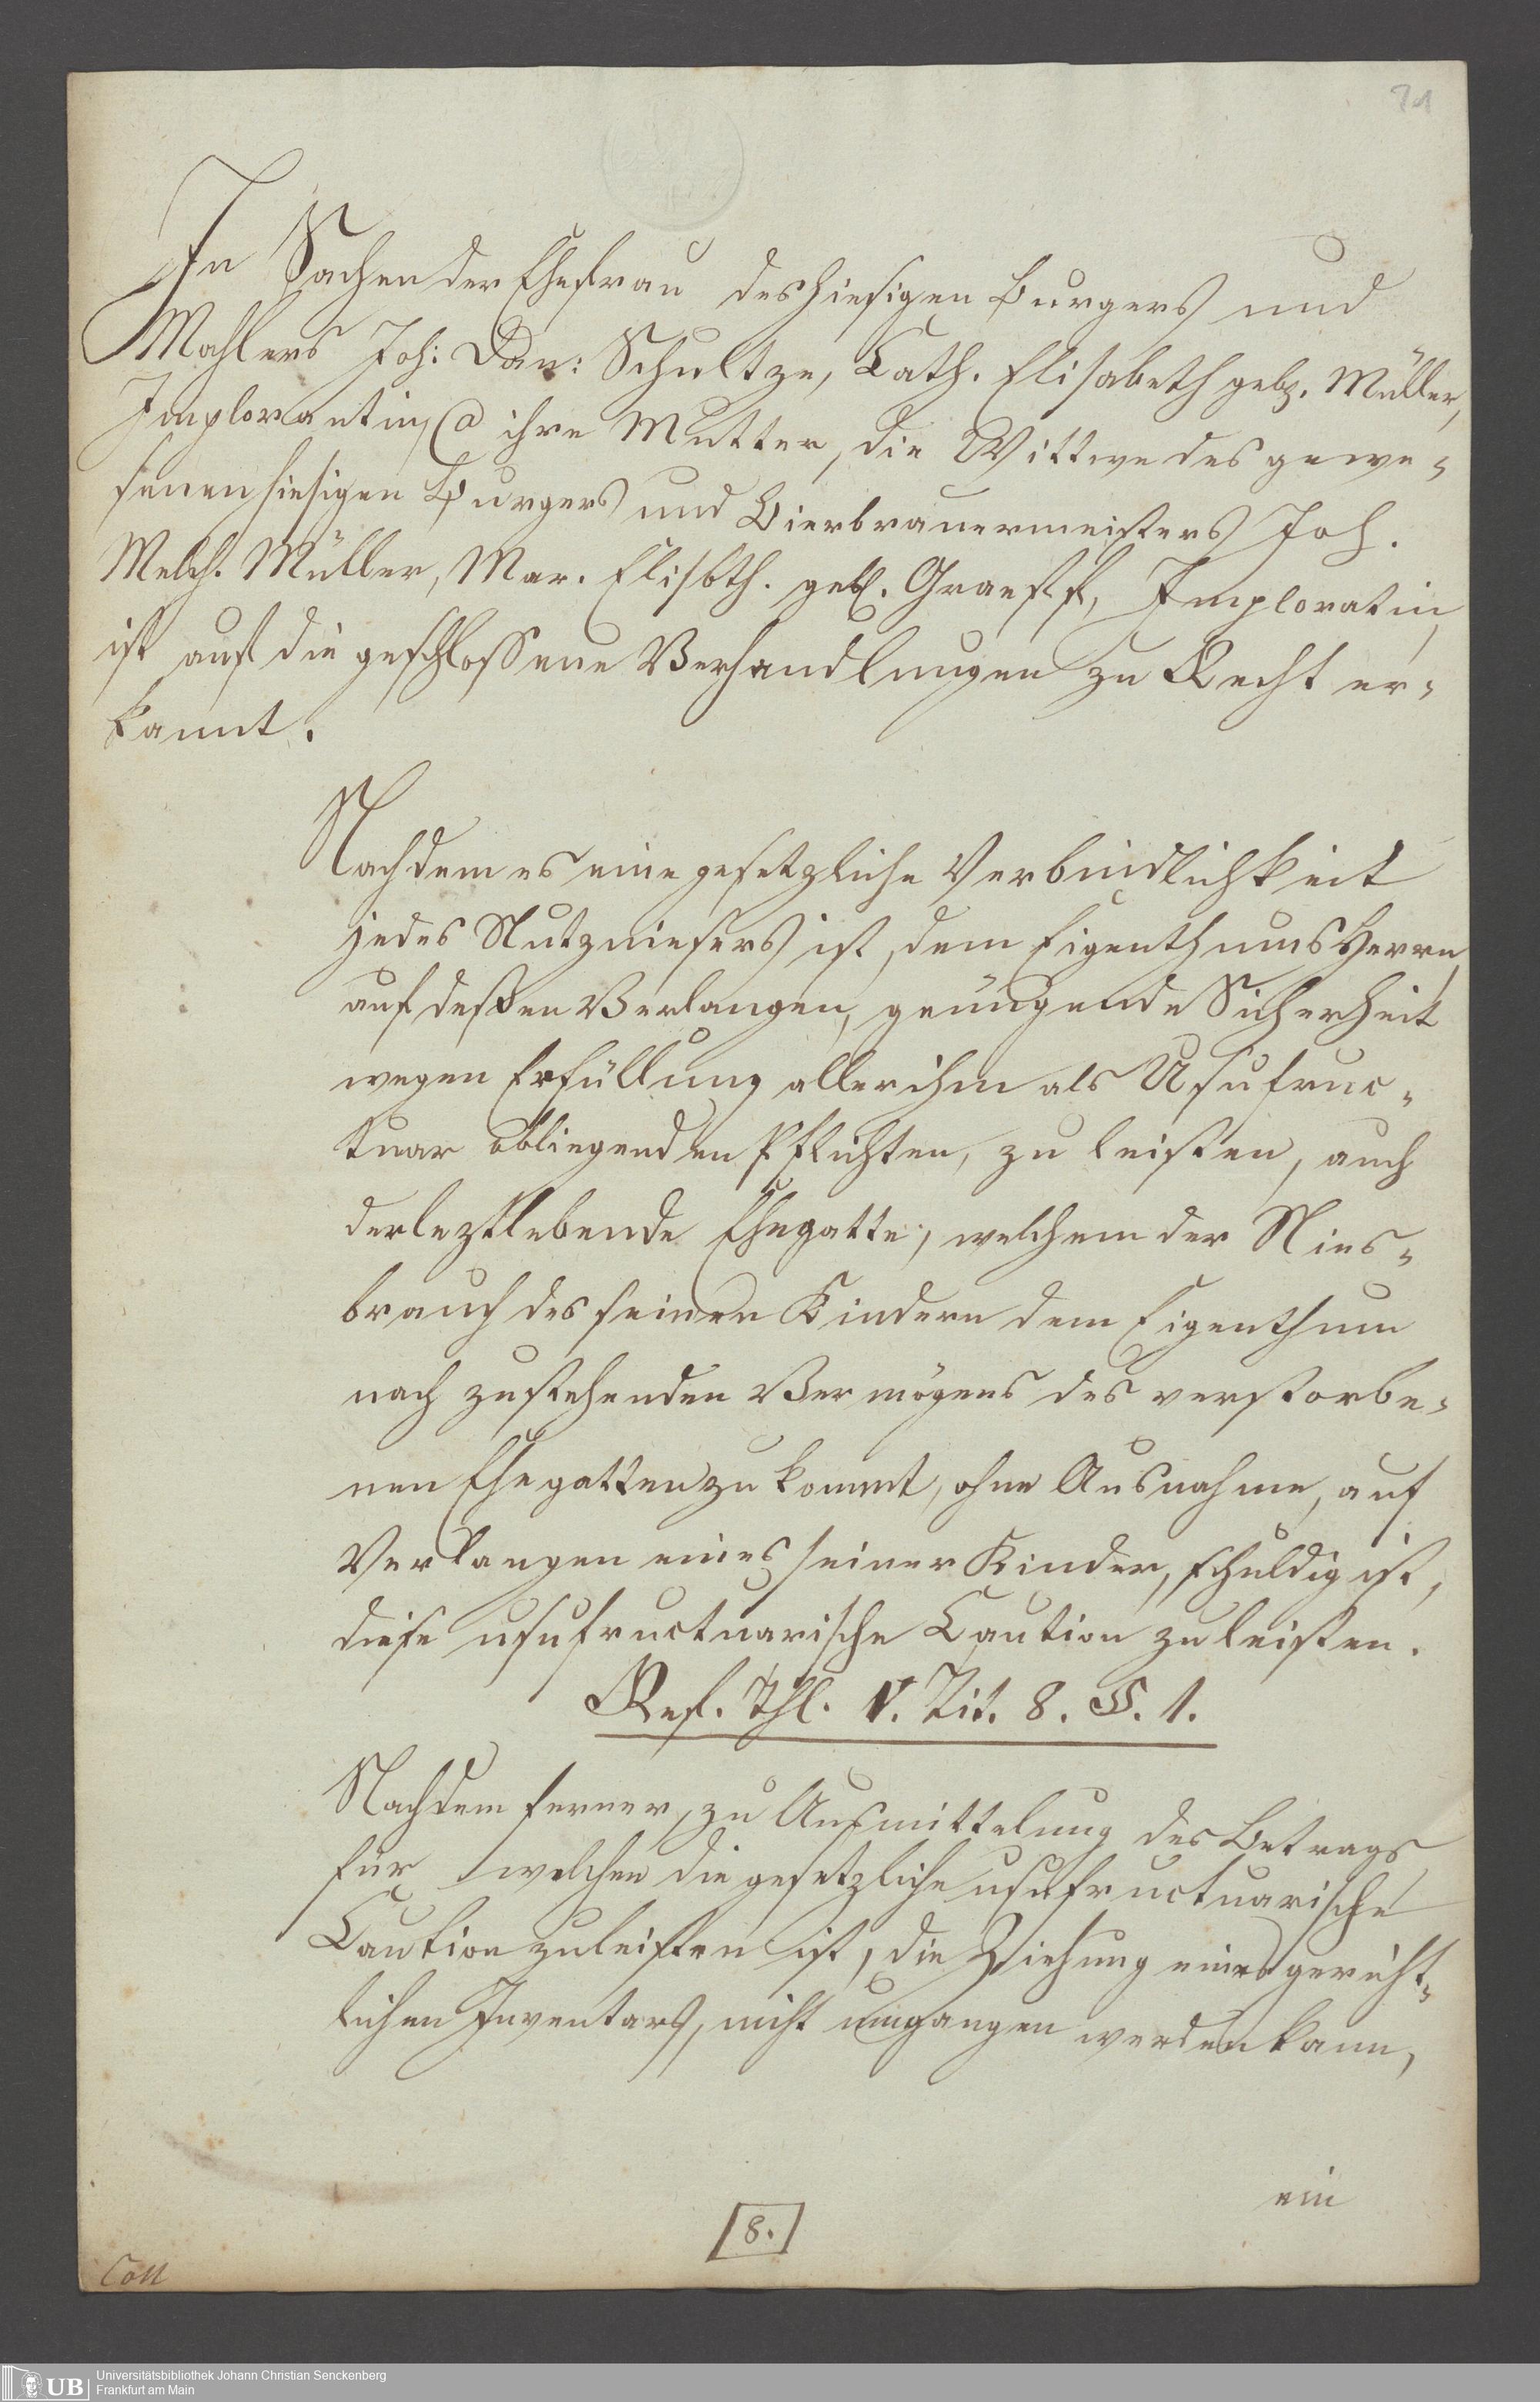 21
In Sachen der Ehefrau des hiesigen Burgers und
Mahlers Joh: Dan: Schultze, Cath. Elisabeth geb. Müller,
Implorantin, @ ihre Mutter, die Wittwe des gewe-
senen hiesigen Burgers und Bierbrauermeisters Joh.
Melch. Müller, Mar. Elisbth. geb. Graeff, Imploratin,
ist auf die geschlossene Verhandlungen zu Recht er-
kannt.
Nachdem es eine gesetzliche Verbindlichkeit
jedes Nutzniesers ist, dem Eigenthums Herrn,
auf dessen Verlangen, genügende Sicherheit
wegen Erfüllung aller ihm als Usufruc-
tuar obliegenden Pflichten, zu leisten, auch
der leztlebende Ehegatte, welchem der Nies-
brauch des seinen Kindern dem Eigenthum
nach zustehenden Vermögens des verstorbe-
nen Ehegatten zukommt, ohne Ausnahme, auf
Verlangen eines seiner Kinder, schuldig ist,
diese usufructuarische Caution zu leisten.
Ref. Thl. V. Tit. 8. §. 1.
Nachdem ferner, zu Ausmittelung des Betrags
für welchen die gesetzliche usufructuarische
Caution zu leisten ist, die Ziehung eines gericht-
lichen Inventars, nicht umgangen werden kann,
ein
8.
Coll
UB
Universitätsbibliothek Johann Christian Senckenberg
Frankfurt am Main